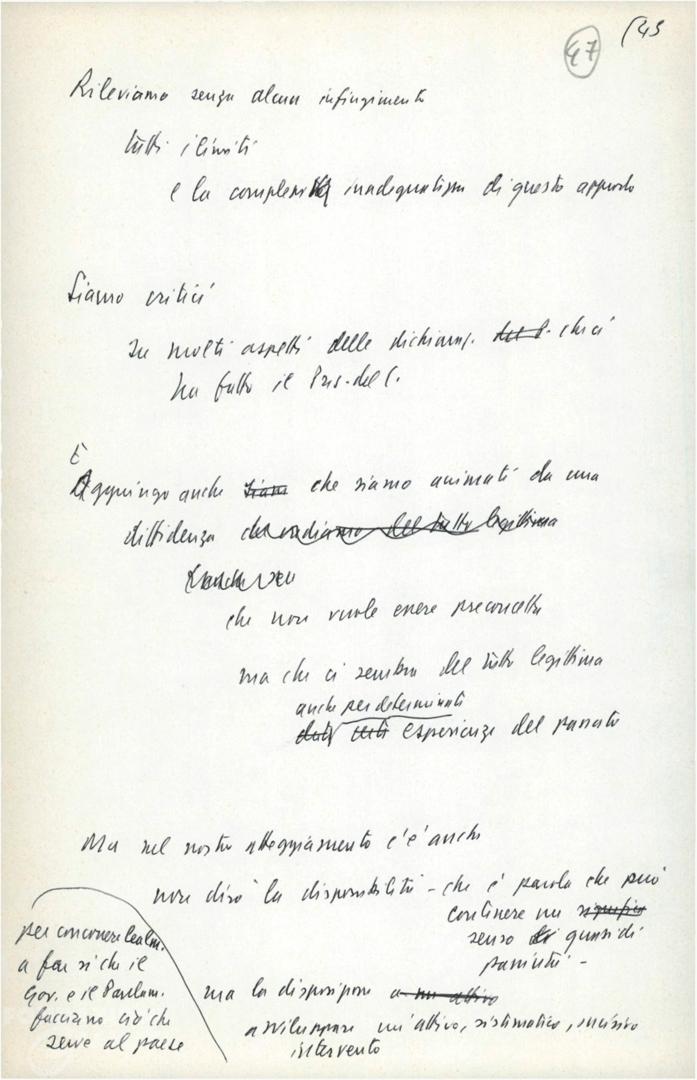 47
Rileviamo senza alcun infingimento
tutti i limiti
e la complessità inadeguatezza di questo approdo
Siamo critici
su molti aspetti delle dichiaraz. che ci
ha fatto il Pres. del C.
E
Aggiungo anche siam che siamo animati da una
diffidenza che crediamo del tutto legittima
che non vuole essere preconcetta
ma che ci sembra del tutto legittima
anche per determinati
esperienze del passato
Ma nel nostro atteggiamento c'è anche
non dirò la disponibilità - che è parola che può
contenere un significa
senso quasi di
passività -
ma la disposizione a un attivo
a sviluppare un'attivo, sistematico, incisivo
intervento
per concorrere lealm.
a far sì che il
Gov. e il Parlam.
facciano ciò che
serve al paese